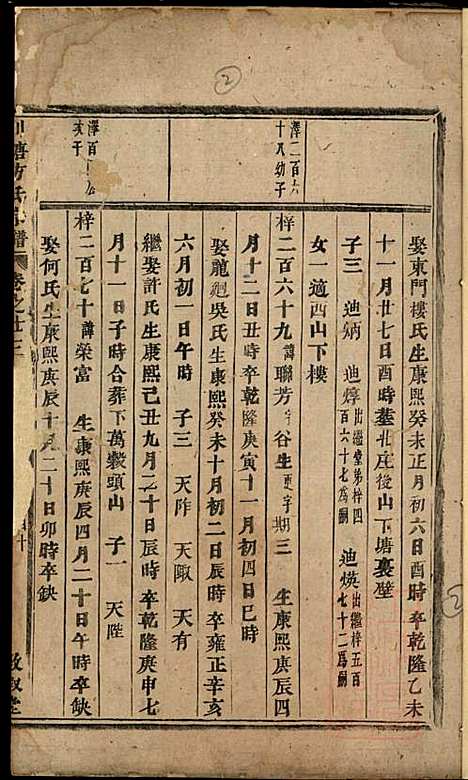 2
娶東門樓氏生康熙癸未正月初六日酉時卒乾隆乙未
十一月廿七日酉時塟北庄後山下塘裏壁
子三　迪炳　迪焞出繼堂弟梓四百六十七爲嗣　迪煐出繼梓五百七十二爲嗣
女一適西山下樓
澤二百六十八幼子
梓二百六十九諱聯芳字谷生更字期三　生康熙庚辰四
月十二日丑時卒乾隆庚寅十一月初四日巳時
娶龍𢌞吳氏生康熙癸未十月初二日辰時卒雍正辛亥
六月初一日午時　子三　天阼　天陬　天有
繼娶許氏生康熙己丑九月二十日辰時卒乾隆庚申七
月十一日子時合葬下萬穀頭山　子一　天陛
澤百
梓二百七十諱榮富　生康熙庚辰四月二十日午時卒缺
娶何氏生康熙庚辰十月二十日卯時卒缺
方氏 譜 卷之廿三
敦叙堂
2